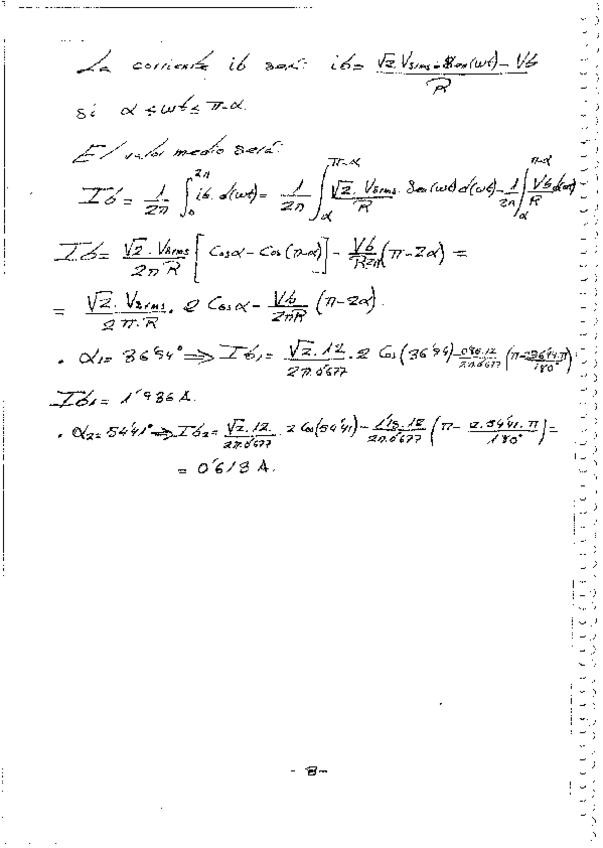 La corriente ib será: ib = √2.Vsrms.Sen(wt) - Vb / R
si α ≤ wt ≤ π-α.
El valor medio será:
Ib = 1/2π ∫₀^2π ib.d(wt) = 1/2π ∫_α^π-α √2.Vsrms/R . Sen(wt) d(wt) - 1/2π ∫_α^π-α Vb/R d(wt)
Ib = √2.Vsrms/2πR [Cosα - Cos(π-α)] - Vb/R2π (π-2α) =
= √2.Vsrms/2π.R . 2 Cosα - Vb/2πR (π-2α).
. α₁ = 36'94° ⇒ Ib₁ = √2.12/2π.0'677 . 2 Cos(36'94) - 12/2π.0'677
Ib₁ = 1'936 A.
. α₂ = 54'41° ⇒ Ib₂ = √2.12/2π.0'677 . 2 Cos(54'41) - 1'15.12/2π.0'677 (π - 2.54'41.π/180°) =
= 0'613 A.
- 8 -